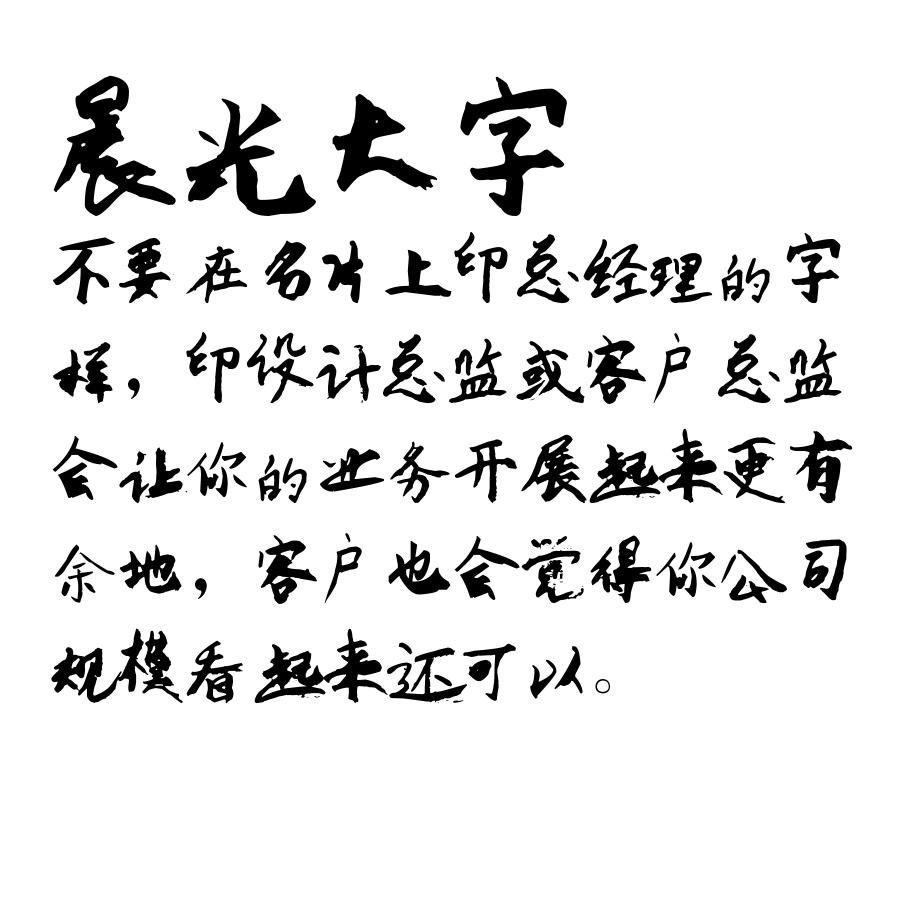 晨光大字
不要在名片上印总经理的字
样，印设计总监或客户总监
会让你的业务开展起来更有
余地，客户也会觉得你公司
规模看起来还可以。